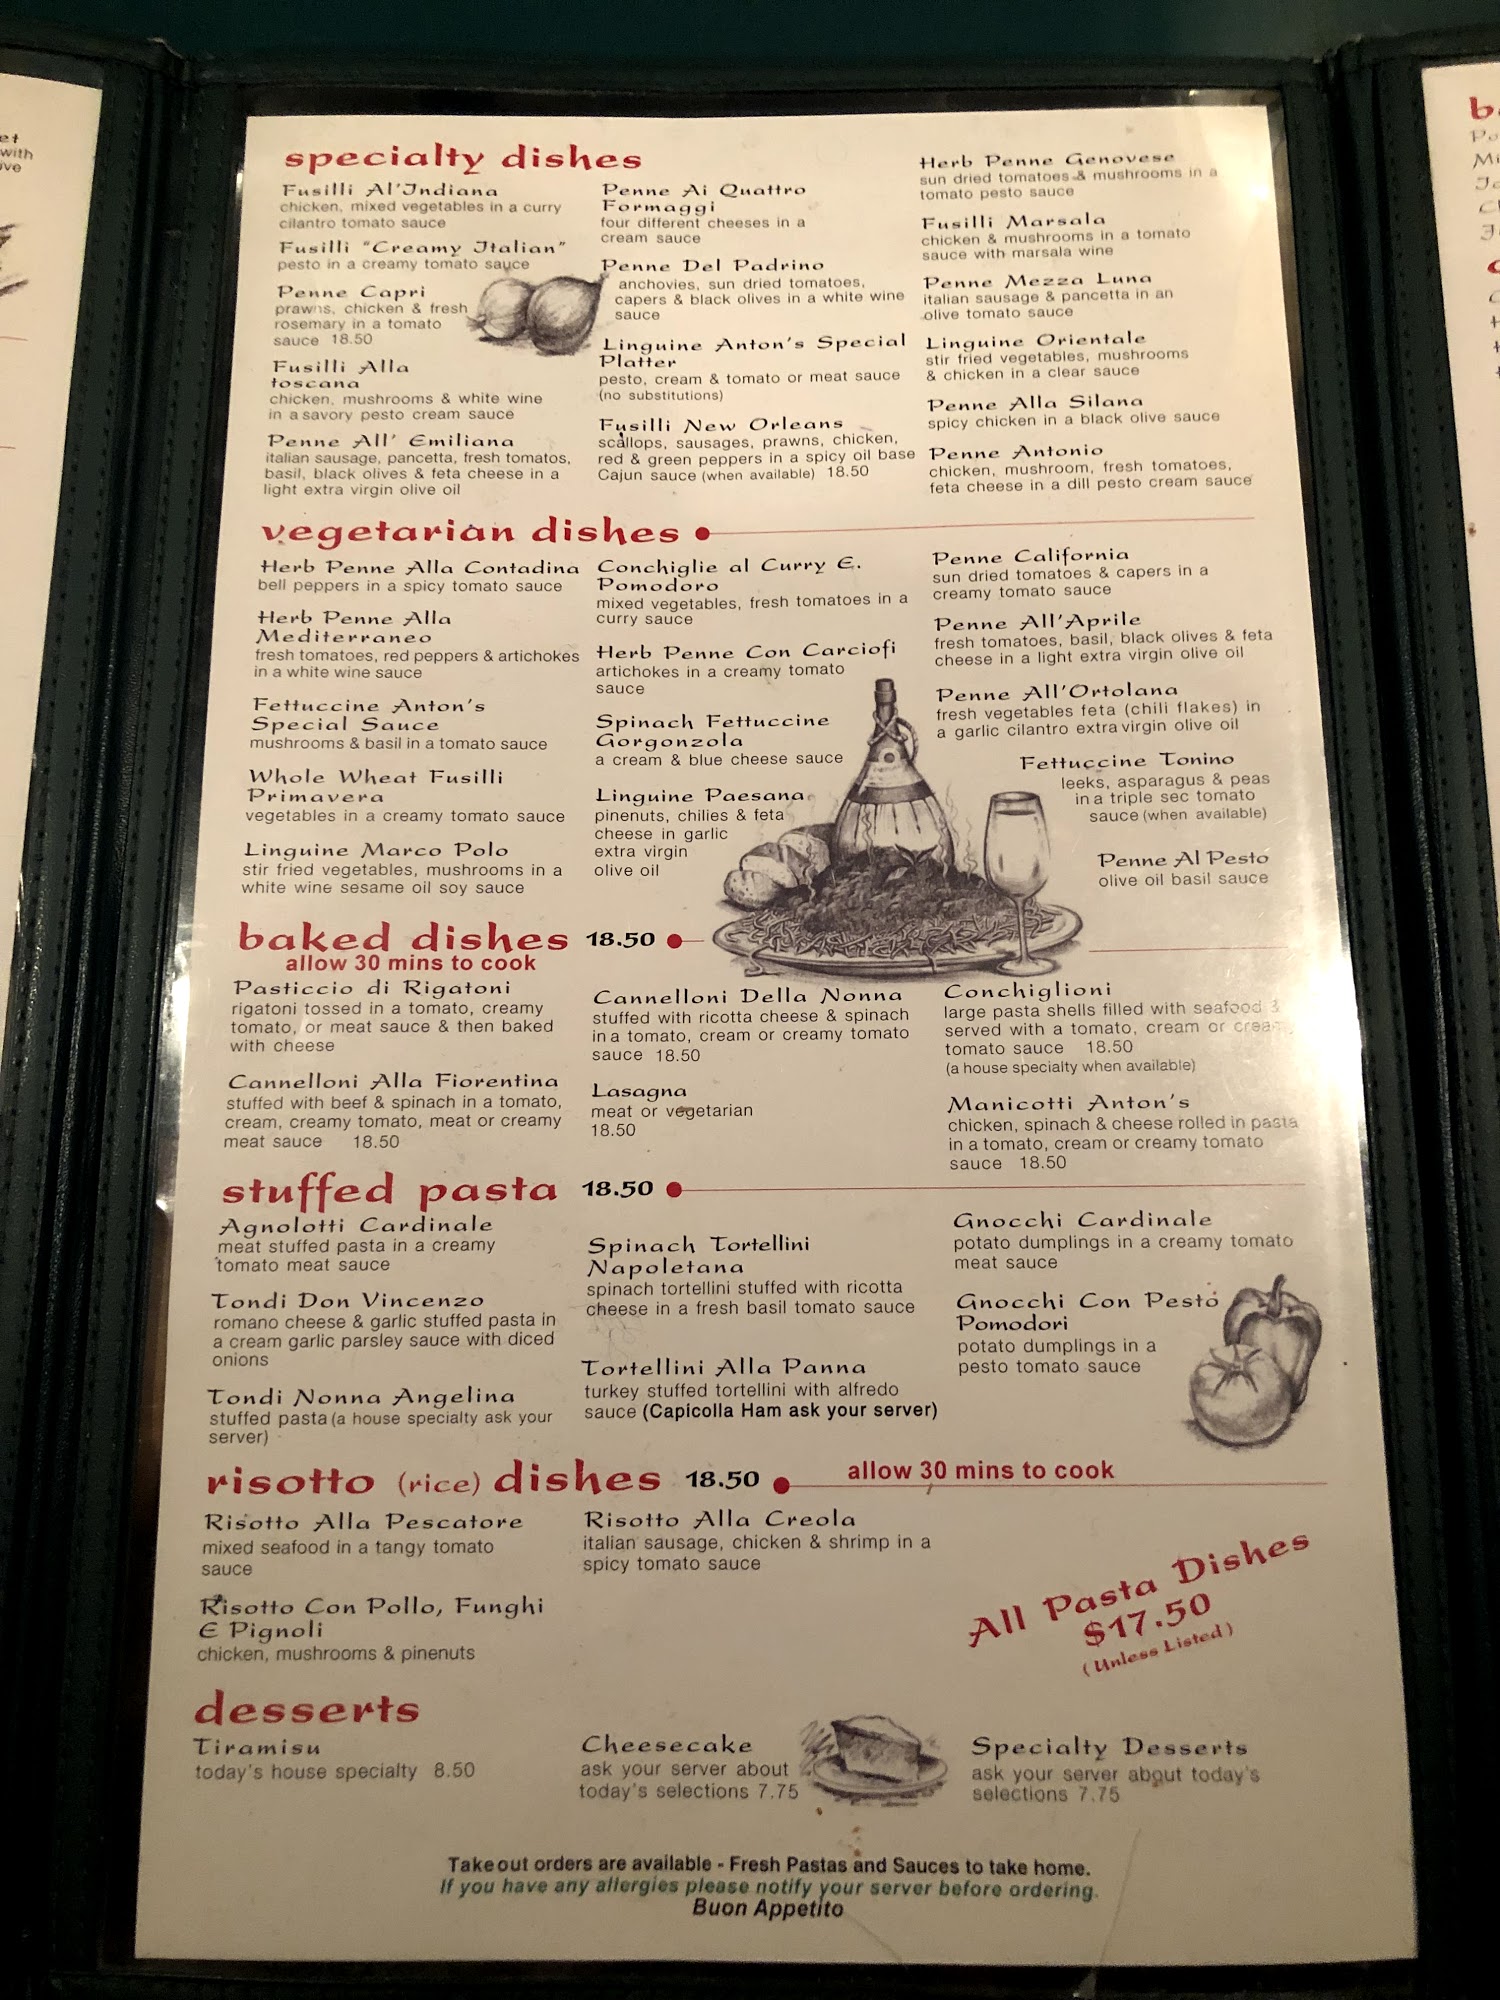 specialty dishes
Fusilli Al'Indiana
chicken, mixed vegetables in a curry
cilantro tomato sauce
Fusilli "Creamy Italian"
pesto in a creamy tomato sauce
Penne Capri
prawns, chicken & fresh
rosemary in a tomato
sauce 18.50
Fusilli Alla
toscana
chicken, mushrooms & white wine
in a savory pesto cream sauce
Penne All' Emiliana
italian sausage, pancetta, fresh tomatos,
basil, black olives & feta cheese in a
light extra virgin olive oil
Penne Ai Quattro
Formaggi
four different cheeses in a
cream sauce
Penne Del Padrino
anchovies, sun dried tomatoes,
capers & black olives in a white wine
sauce
Linguine Anton's Special
Platter
pesto, cream & tomato or meat sauce
(no substitutions)
Fusilli New Orleans
scallops, sausages, prawns, chicken,
red & green peppers in a spicy oil base
Cajun sauce (when available) 18.50
Herb Penne Genovese
sun dried tomatoes & mushrooms in a
tomato pesto sauce
Fusilli Marsala
chicken & mushrooms in a tomato
sauce with marsala wine
Penne Mezza Luna
italian sausage & pancetta in an
olive tomato sauce
Linguine Orientale
stir fried vegetables, mushrooms
& chicken in a clear sauce
Penne Alla Silana
spicy chicken in a black olive sauce
Penne Antonio
chicken, mushroom, fresh tomatoes,
feta cheese in a dill pesto cream sauce
vegetarian dishes
Herb Penne Alla Contadina
bell peppers in a spicy tomato sauce
Herb Penne Alla
Mediterraneo
fresh tomatoes, red peppers & artichokes
in a white wine sauce
Fettuccine Anton's
Special Sauce
mushrooms & basil in a tomato sauce
Whole Wheat Fusilli
Primavera
vegetables in a creamy tomato sauce
Linguine Marco Polo
stir fried vegetables, mushrooms in a
white wine sesame oil soy sauce
Conchiglie al Curry E.
Pomodoro
mixed vegetables, fresh tomatoes in a
curry sauce
Herb Penne Con Carciofi
artichokes in a creamy tomato
sauce
Spinach Fettuccine
Gorgonzola
a cream & blue cheese sauce
Linguine Paesana
pinenuts, chilies & feta
cheese in garlic
extra virgin
olive oil
Penne California
sun dried tomatoes & capers in a
creamy tomato sauce
Penne All'Aprile
fresh tomatoes, basil, black olives & feta
cheese in a light extra virgin olive oil
Penne All'Ortolana
fresh vegetables feta (chili flakes) in
a garlic cilantro extra virgin olive oil
Fettuccine Tonino
leeks, asparagus & peas
in a triple sec tomato
sauce (when available)
Penne Al Pesto
olive oil basil sauce
baked dishes 18.50
allow 30 mins to cook
Pasticcio di Rigatoni
rigatoni tossed in a tomato, creamy
tomato, or meat sauce & then baked
with cheese
Cannelloni Alla Fiorentina
stuffed with beef & spinach in a tomato,
cream, creamy tomato, meat or creamy
meat sauce 18.50
Cannelloni Della Nonna
stuffed with ricotta cheese & spinach
in a tomato, cream or creamy tomato
sauce 18.50
Lasagna
meat or vegetarian
18.50
Conchiglioni
large pasta shells filled with seafood &
served with a tomato, cream or creamy
tomato sauce 18.50
(a house specialty when available)
Manicotti Anton's
chicken, spinach & cheese rolled in pasta
in a tomato, cream or creamy tomato
sauce 18.50
stuffed pasta 18.50
Agnolotti Cardinale
meat stuffed pasta in a creamy
tomato meat sauce
Tondi Don Vincenzo
romano cheese & garlic stuffed pasta in
a cream garlic parsley sauce with diced
onions
Tondi Nonna Angelina
stuffed pasta (a house specialty ask your
server)
Spinach Tortellini
Napoletana
spinach tortellini stuffed with ricotta
cheese in a fresh basil tomato sauce
Tortellini Alla Panna
turkey stuffed tortellini with alfredo
sauce (Capicolla Ham ask your server)
Gnocchi Cardinale
potato dumplings in a creamy tomato
meat sauce
Gnocchi Con Pesto
Pomodori
potato dumplings in a
pesto tomato sauce
risotto (rice) dishes 18.50 allow 30 mins to cook
Risotto Alla Pescatore
mixed seafood in a tangy tomato
sauce
Risotto Con Pollo, Funghi
E Pignoli
chicken, mushrooms & pinenuts
Risotto Alla Creola
italian sausage, chicken & shrimp in a
spicy tomato sauce
All Pasta Dishes
$17.50
(Unless Listed)
desserts
Tiramisu
today's house specialty 8.50
Cheesecake
ask your server about
today's selections 7.75
Specialty Desserts
ask your server about today's
selections 7.75
Takeout orders are available - Fresh Pastas and Sauces to take home.
If you have any allergies please notify your server before ordering.
Buon Appetito